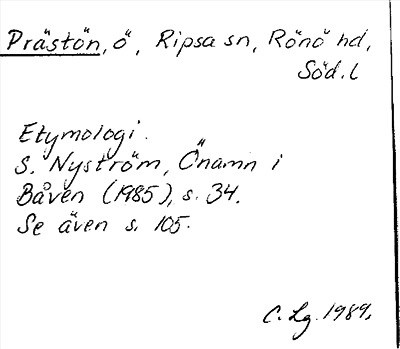 Prästön, ö, Ripsa sn, Rönö hd,
Söd. l
Etymologi.
S. Nyström, Önamn i
Båven (1985), s. 34.
Se även s. 105.
C. Lg. 1989.